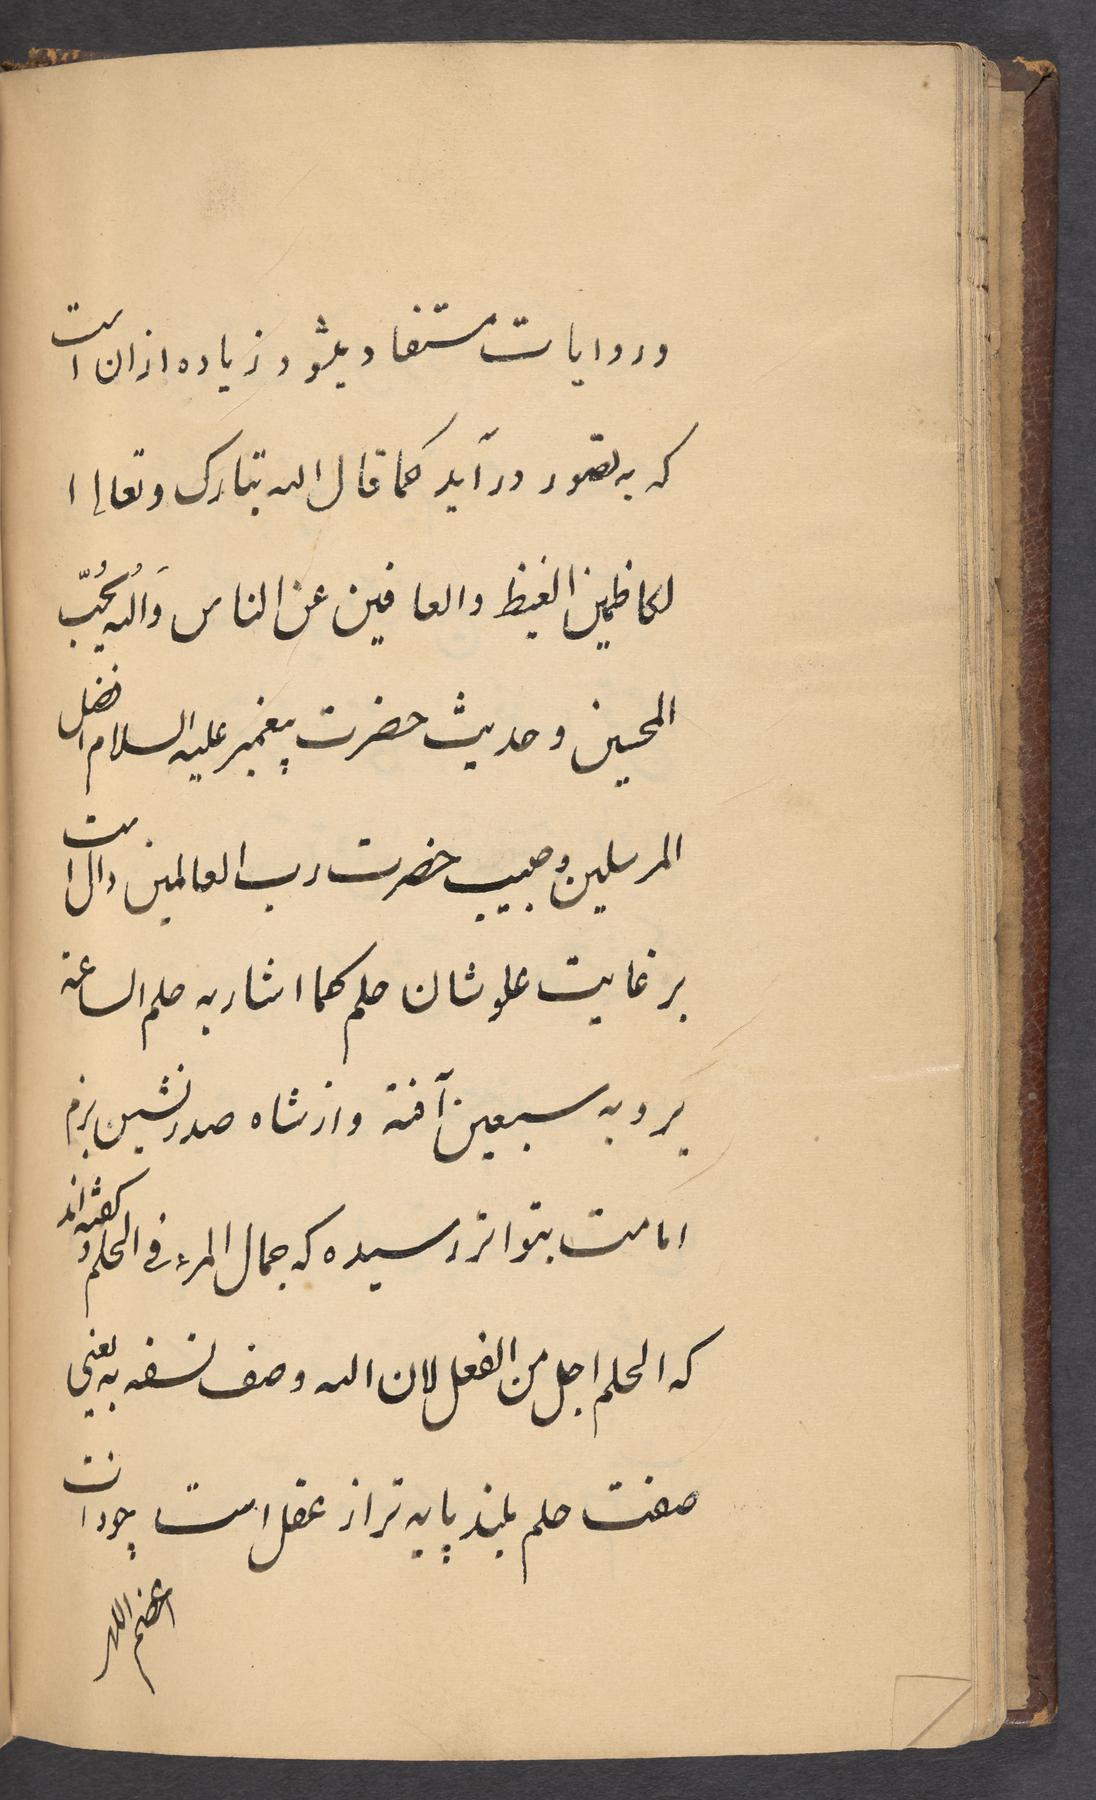 و روایات مستفاد میشود زیاده ازان است
که به تصور در آید کما قال الله تبارک و تعالی ا
لکاظمین الغیظ والعافین عن الناس وَاللهُ یُحُبّ
المحسنین و حدیث حضرت پیغمبر علیه السلام افضل
المرسلین و حبیب حضرت رب العالمین دال است
بر غایت علو شان حلم کما اشار به حلم الساعة
یرد به سبعین آفة و از شاه صدر نشین بزم
امامت بتواتر رسیده که جمال المرء فی الحلم و گفته اند
که الحلم اجل من الفعل لان الله وصف نسفه به یعنی
صفت حلم بلند پایه تر از عقل است چودات